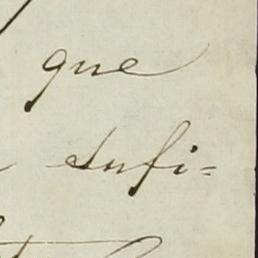 que
sufi=